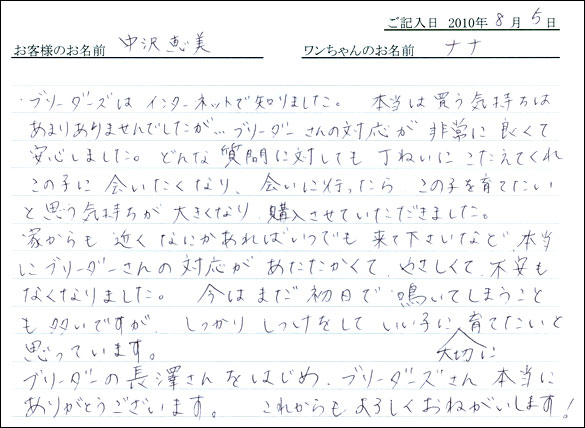 ご記入日 2010年 8月 5日
お客様のお名前 中沢恵美 ワンちゃんのお名前 ナナ
・ブリーダーズは インターネットで知りました。 本当は買う気持ちは
あまりありませんでしたが… ブリーダーさんの対応が 非常に良くて
安心しました。どんな質問に対しても 丁ねいに こたえてくれ
この子に 会いたくなり、会いに行ったら この子を育てたい
と思う気持ちが 大きくなり 購入させていただきました。
家からも近く なにかあればいつでも 来て下さいなど、本当
にブリーダーさんの対応があたたかくて、やさしくて、不安も
なくなりました。 今はまだ初日で 鳴いてしまうこと
も多いですが、しっかり しつけをして いい子に 大切に 育てたいと
思っています。
ブリーダーの長澤さんをはじめ、ブリーダーズさん 本当に
ありがとうございます。 これからもよろしくおねがいします!